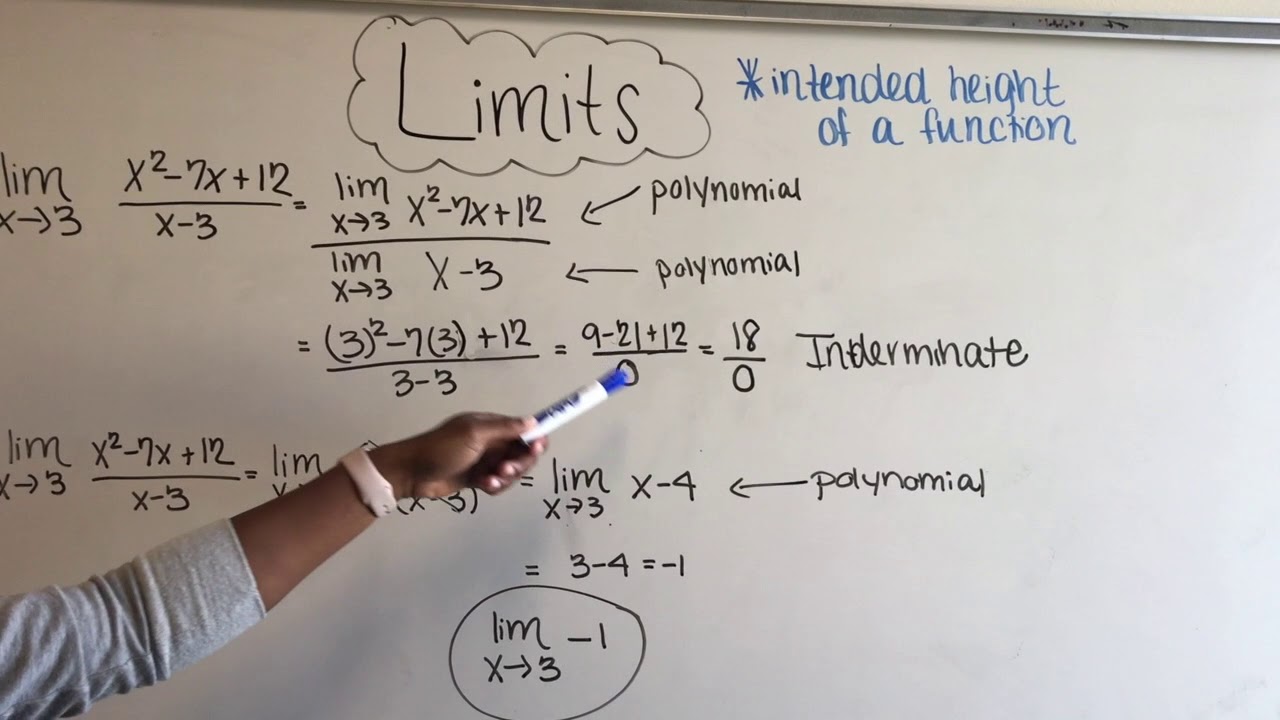 Limits
*intended height
of a function
lim x→3 x²-7x+12 / x-3 = lim x→3 x²-7x+12 / lim x→3 x-3
← polynomial
← polynomial
= (3)²-7(3)+12 / 3-3 = 9-21+12 / 0 = 18 / 0 Inderminate
lim x→3 x²-7x+12 / x-3 = lim (x-3) = lim x→3 x-4 ← polynomial
= 3-4 = -1
lim x→3 -1